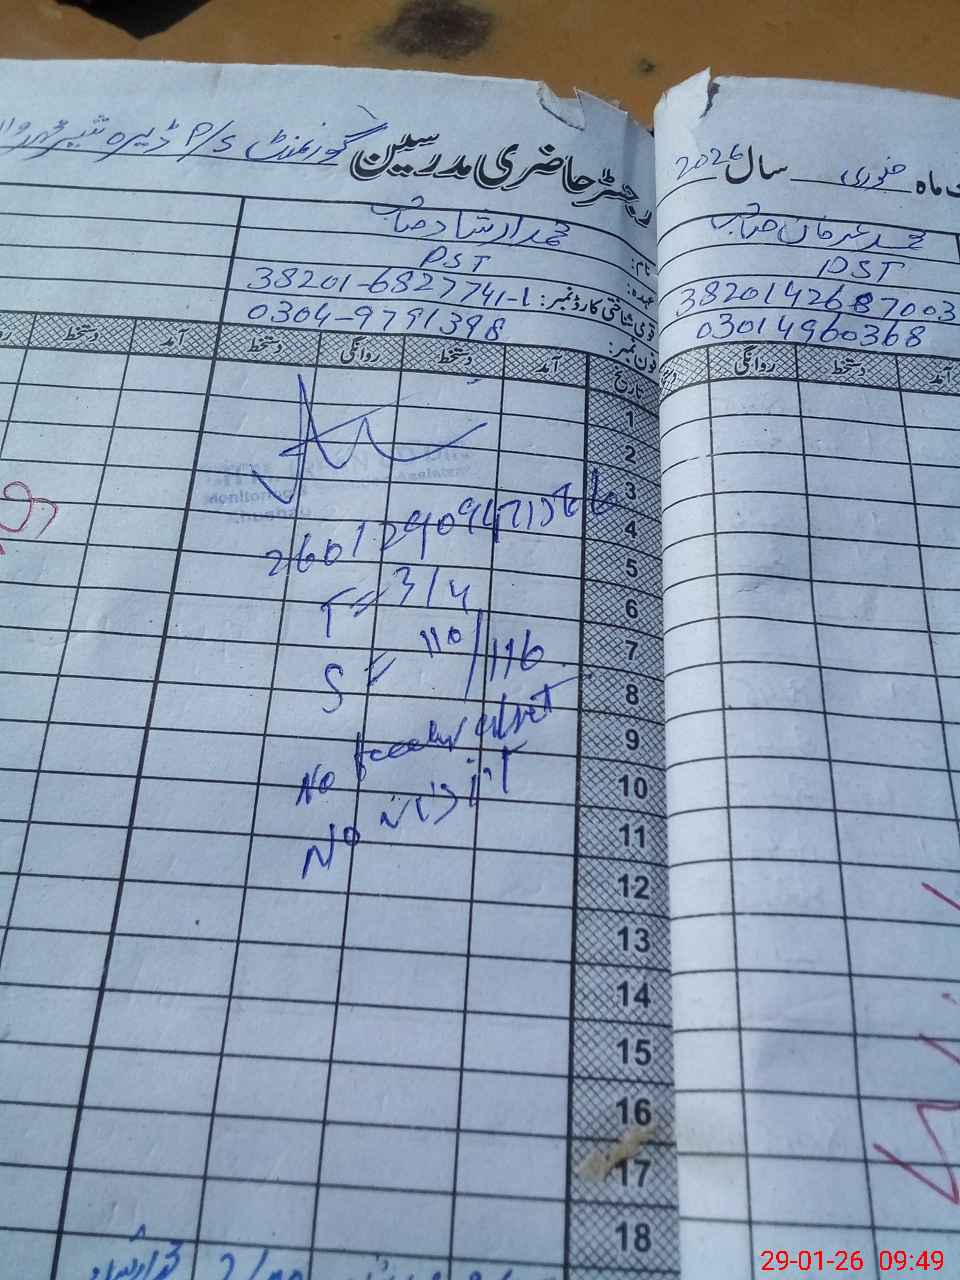 رجسٹر حاضری مدرسین گورنمنٹ P/S ڈیرہ
ماہ جنوری سال 2026
نام: محمد ارشاد صاحب
عہدہ: PST
قومی شناختی کارڈ نمبر: 38201-6827741-1
فون نمبر: 0304-9791398
محمد عرفان صاحب
PST
3820142687003
03014960368
تاریخ آمد دستخط روانگی دستخط آمد دستخط
آمد دستخط روانگی دستخط
1
2
3
4
5
6
7
8
9
10
11
12
13
14
15
16
17
18
T = 3/4
S = 110/116
No
No
29-01-26 09:49